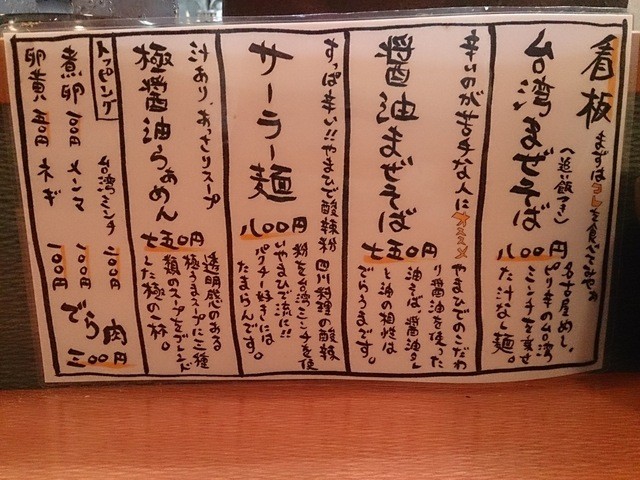 看板
まずはコレを食べてみやぁ
台湾まぜそば
(追い飯アリ)
八〇〇円
名古屋めし、
ピリ辛の台湾
ミンチを乗せ
た汁なし麺。
辛いのが苦手な人にオススメ
醤油まぜそば
七五〇円
やまひでのこだわ
り醤油を使った
油そば 醤油ダレ
と油の相性は
でらうまです。
すっぱ辛い!!やまひで酸辣粉
サーラー麺
八〇〇円
四川料理の酸辣
粉を台湾ミンチを使
いやまひで流に!!
パクチー好きには
たまらんです。
汁あり、あっさりスープ
極醤油らぁめん
七五〇円
透明感のある
極うまスープに三種
類のスープをブレンド
した極の一杯。
トッピング
台湾ミンチ 二〇〇円
煮卵 一〇〇円
メンマ 一〇〇円
卵黄 五〇円
ネギ 一〇〇円
でら肉
三〇〇円